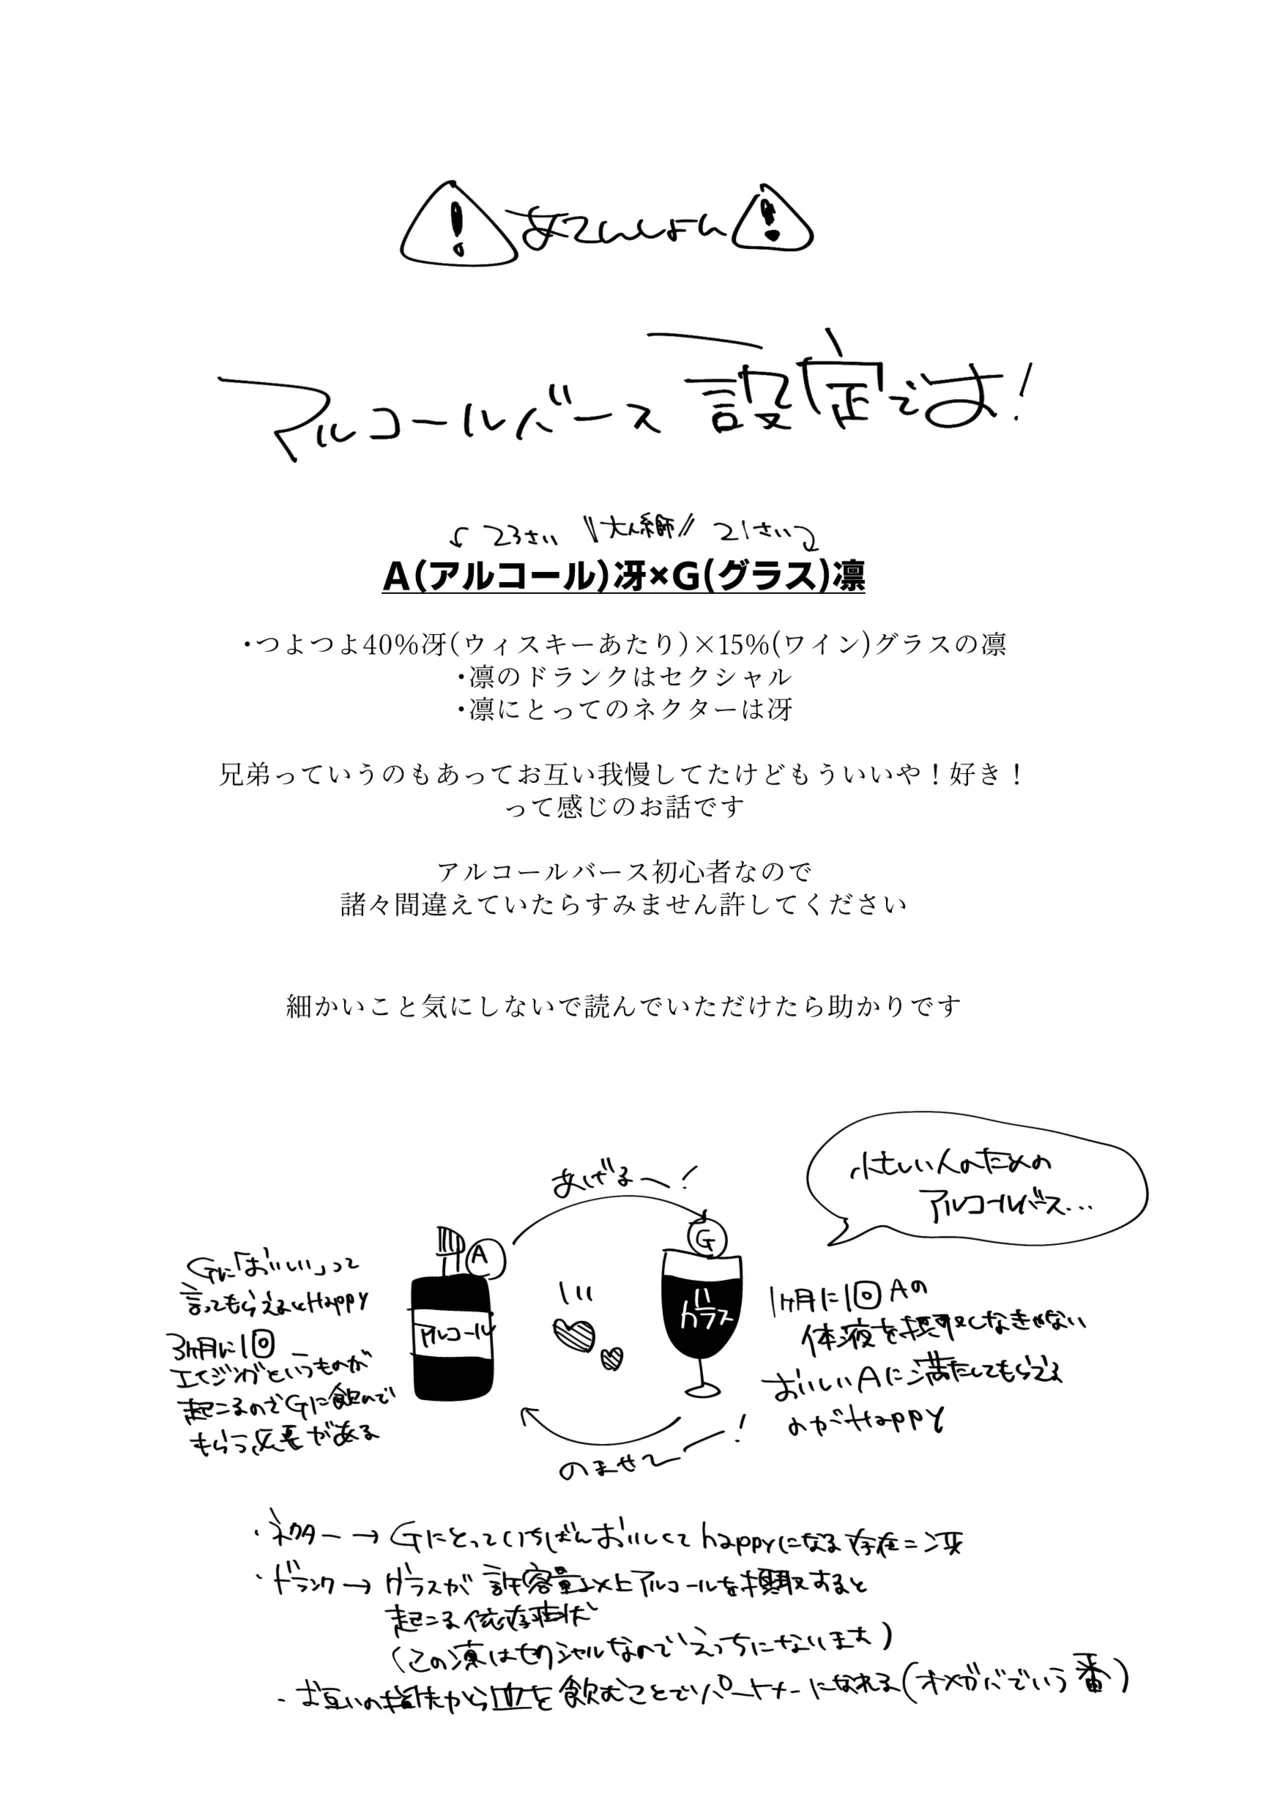 あてんしょん
アルコールバース設定です!
23さい 大人糸師 21さい
A(アルコール)冴×G(グラス)凛
・つよつよ40%冴(ウィスキーあたり)×15%(ワイン)グラスの凛
・凛のドランクはセクシャル
・凛にとってのネクターは冴
兄弟っていうのもあってお互い我慢してたけどもういいや!好き!
って感じのお話です
アルコールバース初心者なので
諸々間違えていたらすみません許してください
細かいこと気にしないで読んでいただけたら助かりです
忙しい人のための
アルコールバース...
あげる〜!
A
G
アルコール
グラス
のませて〜!
Gに「おいしい」って
言ってもらえるとHappy
3ヶ月に1回
エイジングというものが
起こるのでGに飲んで
もらう必要がある
1ヶ月に1回Aの
体液を摂取しなきゃない
おいしいAに満たしてもらえる
のがHappy
・ネクター→Gにとっていちばんおいしくてhappyになる存在=冴
・ドランク→グラスが許容量以上アルコールを摂取すると
起こる依存症状
(この凛はセクシャルなのでえっちになります)
・お互いの指先から血を飲むことでパートナーになれる(オメガバでいう番)